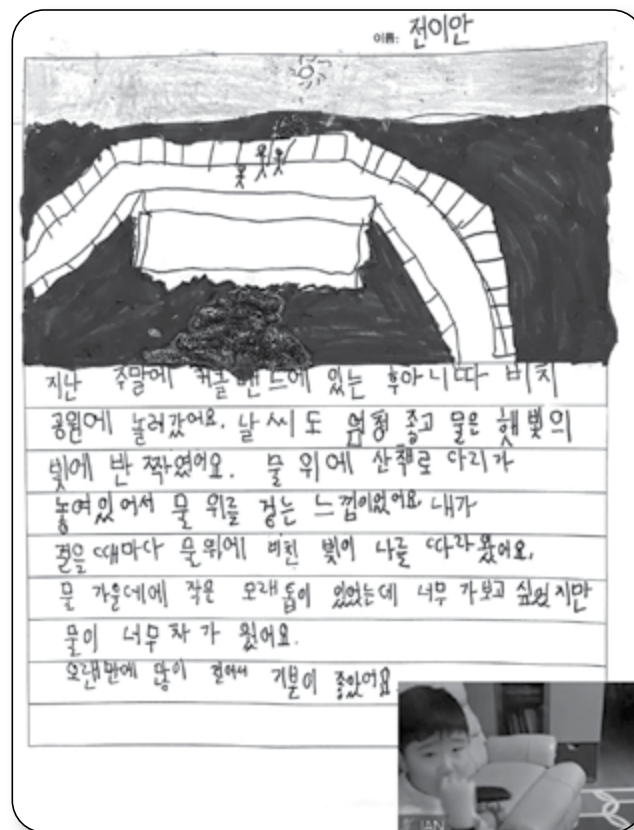 이름: 전이안
지난 주말에 커클랜드에 있는 후아니따 비치
공원에 놀러갔어요. 날씨도 엄청 좋고 물은 햇빛의
빛에 반짝였어요. 물 위에 산책로 다리가
놓여있어서 물 위를 걷는 느낌이었어요. 내가
걸을 때마다 물위에 비친 빛이 나를 따라왔어요.
물 가운데에 작은 모래톱이 있었는데 너무 가보고 싶었지만
물이 너무 차가 웠어요.
오랜만에 많이 걸어서 기분이 좋았어요
IAN